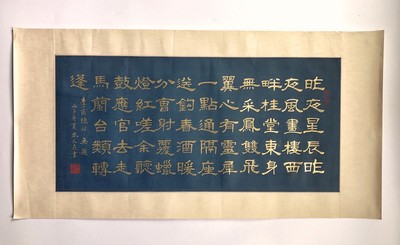 昨夜星辰昨
夜風畫樓西
畔桂堂東身
無采鳳雙飛
翼心有靈犀
一點通隔座
送鈎春酒暖
分曹射覆蠟
燈紅嗟余聽
鼓應官去走
馬蘭台類轉
蓬
李商隱詩無題